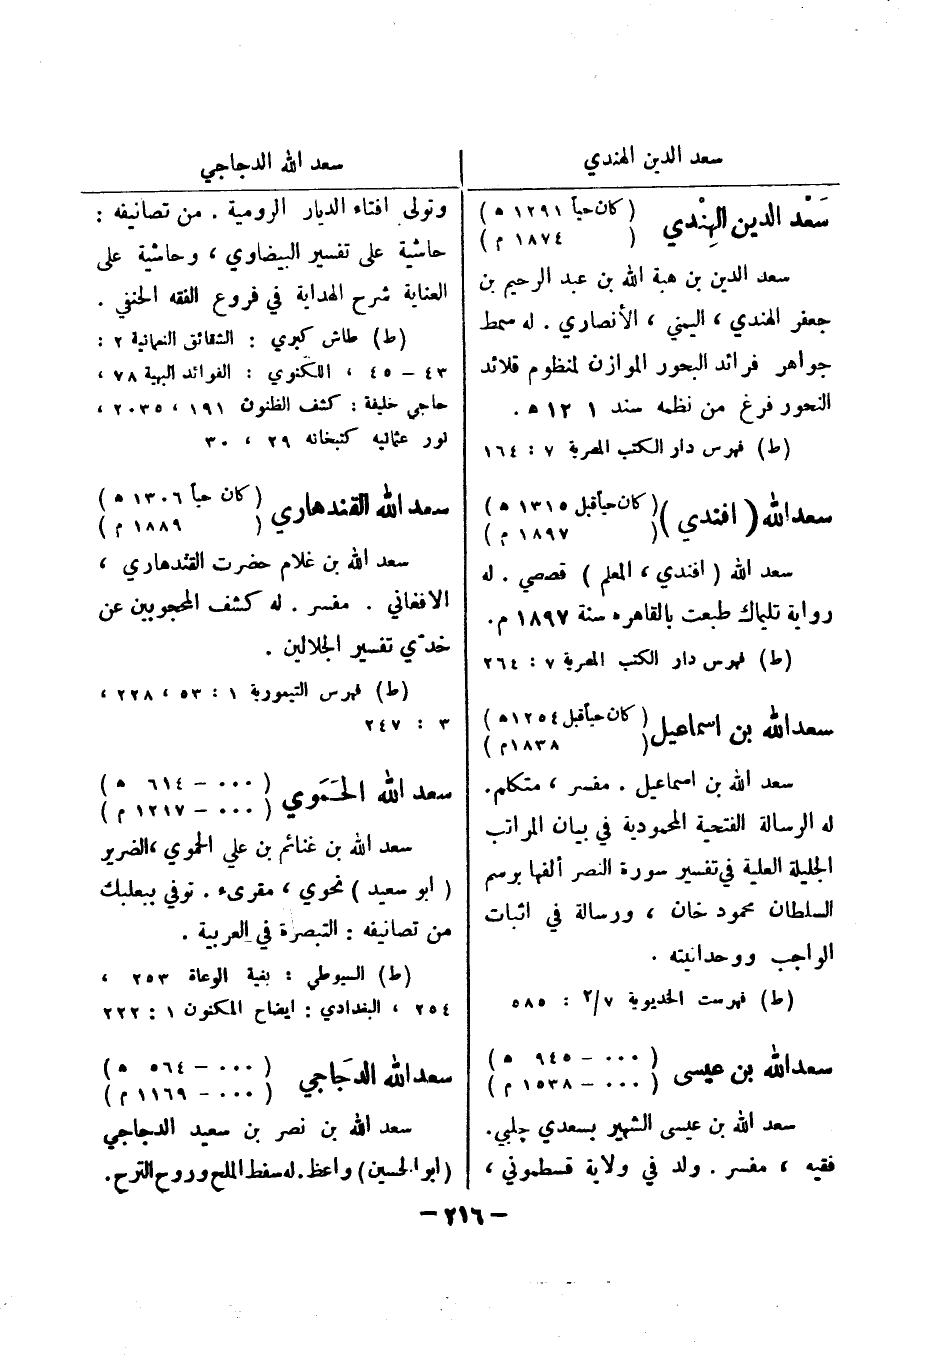 سعد الدين الهندي
سَعْد الدين الهِنْدي ( كان حياً ١٢٩١ ه )
( ١٨٧٤ م )
سعد الدين بن هبة الله بن عبد الرحيم بن
جعفر الهندي ، اليمني ، الأنصاري . له سمط
جواهر فرائد البحور الموازن لمنظوم قلائد
النحور فرغ من نظمه سنة ١٢٩١ ه .
( ط ) فهرس دار الكتب المصرية ٧ : ١٦٤
سعدالله ( افندي ) ( كان حياً قبل ١٣١٥ ه )
( ١٨٩٧ م )
سعد الله ( افندي ، المعلم ) قصصي . له
رواية تليماك طبعت بالقاهره سنة ١٨٩٧ م .
( ط ) فهرس دار الكتب المصرية ٧ : ٢٦٤
سعدالله بن اسماعيل ( كان حياً قبل ١٢٥٤ ه )
( ١٨٣٨ م )
سعد الله بن اسماعيل . مفسر ، متكلم .
له الرسالة الفتحية المحمودية في بيان المراتب
الجليلة العلية في تفسير سورة النصر ألفها برسم
السلطان محمود خان ، ورسالة في اثبات
الواجب ووحدانيته .
( ط ) فهرست الخديوية ٢/٧ : ٥٨٥
سعدالله بن عيسى ( ٠٠٠ – ٩٤٥ ه )
( ٠٠٠ – ١٥٣٨ م )
سعد الله بن عيسى الشهير بسعدي چلبي .
فقيه ، مفسر . ولد في ولاية قسطموني ،
سعد الله الدجاجي
وتولى افتاء الديار الرومية . من تصانيفه :
حاشية على تفسير البيضاوي ، وحاشية على
العناية شرح الهداية في فروع الفقه الحنفي .
( ط ) طاش كبري : الشقائق النعمانية ٢ :
٤٣ – ٤٥ ، اللكنوي : الفوائد البهية ٧٨ ،
حاجي خليفة : كشف الظنون ١٩١ ، ٢٠٣٥ ،
نور عثمانيه كتبخانه ٢٩ ، ٣٠
سعد الله القندهاري ( كان حياً ١٣٠٦ ه )
( ١٨٨٩ م )
سعد الله بن غلام حضرت القندهاري ،
الافغاني . مفسر . له كشف المحجوبين عن
خدّي تفسير الجلالين .
( ط ) فهرس التيمورية ١ : ٥٣ ، ٢٢٨ ،
٣ : ٢٤٧
سعد الله الحَمَوي ( ٠٠٠ – ٦١٤ ه )
( ٠٠٠ – ١٢١٧ م )
سعد الله بن غنائم بن علي الحموي ، الضرير
( ابو سعيد ) نحوي ، مقرىء . توفي ببعلبك
من تصانيفه : التبصرة في العربية .
( ط ) السيوطي : بغية الوعاة ٢٥٣ ،
٢٥٤ ، البغدادي : ايضاح المكنون ١ : ٢٢٢
سعدالله الدجَاجي ( ٠٠٠ – ٥٦٤ ه )
( ٠٠٠ – ١١٦٩ م )
سعد الله بن نصر بن سعيد الدجاجي
( ابو الحسين ) واعظ . له سفط الملح وروح الترح .
– ٢١٦ –